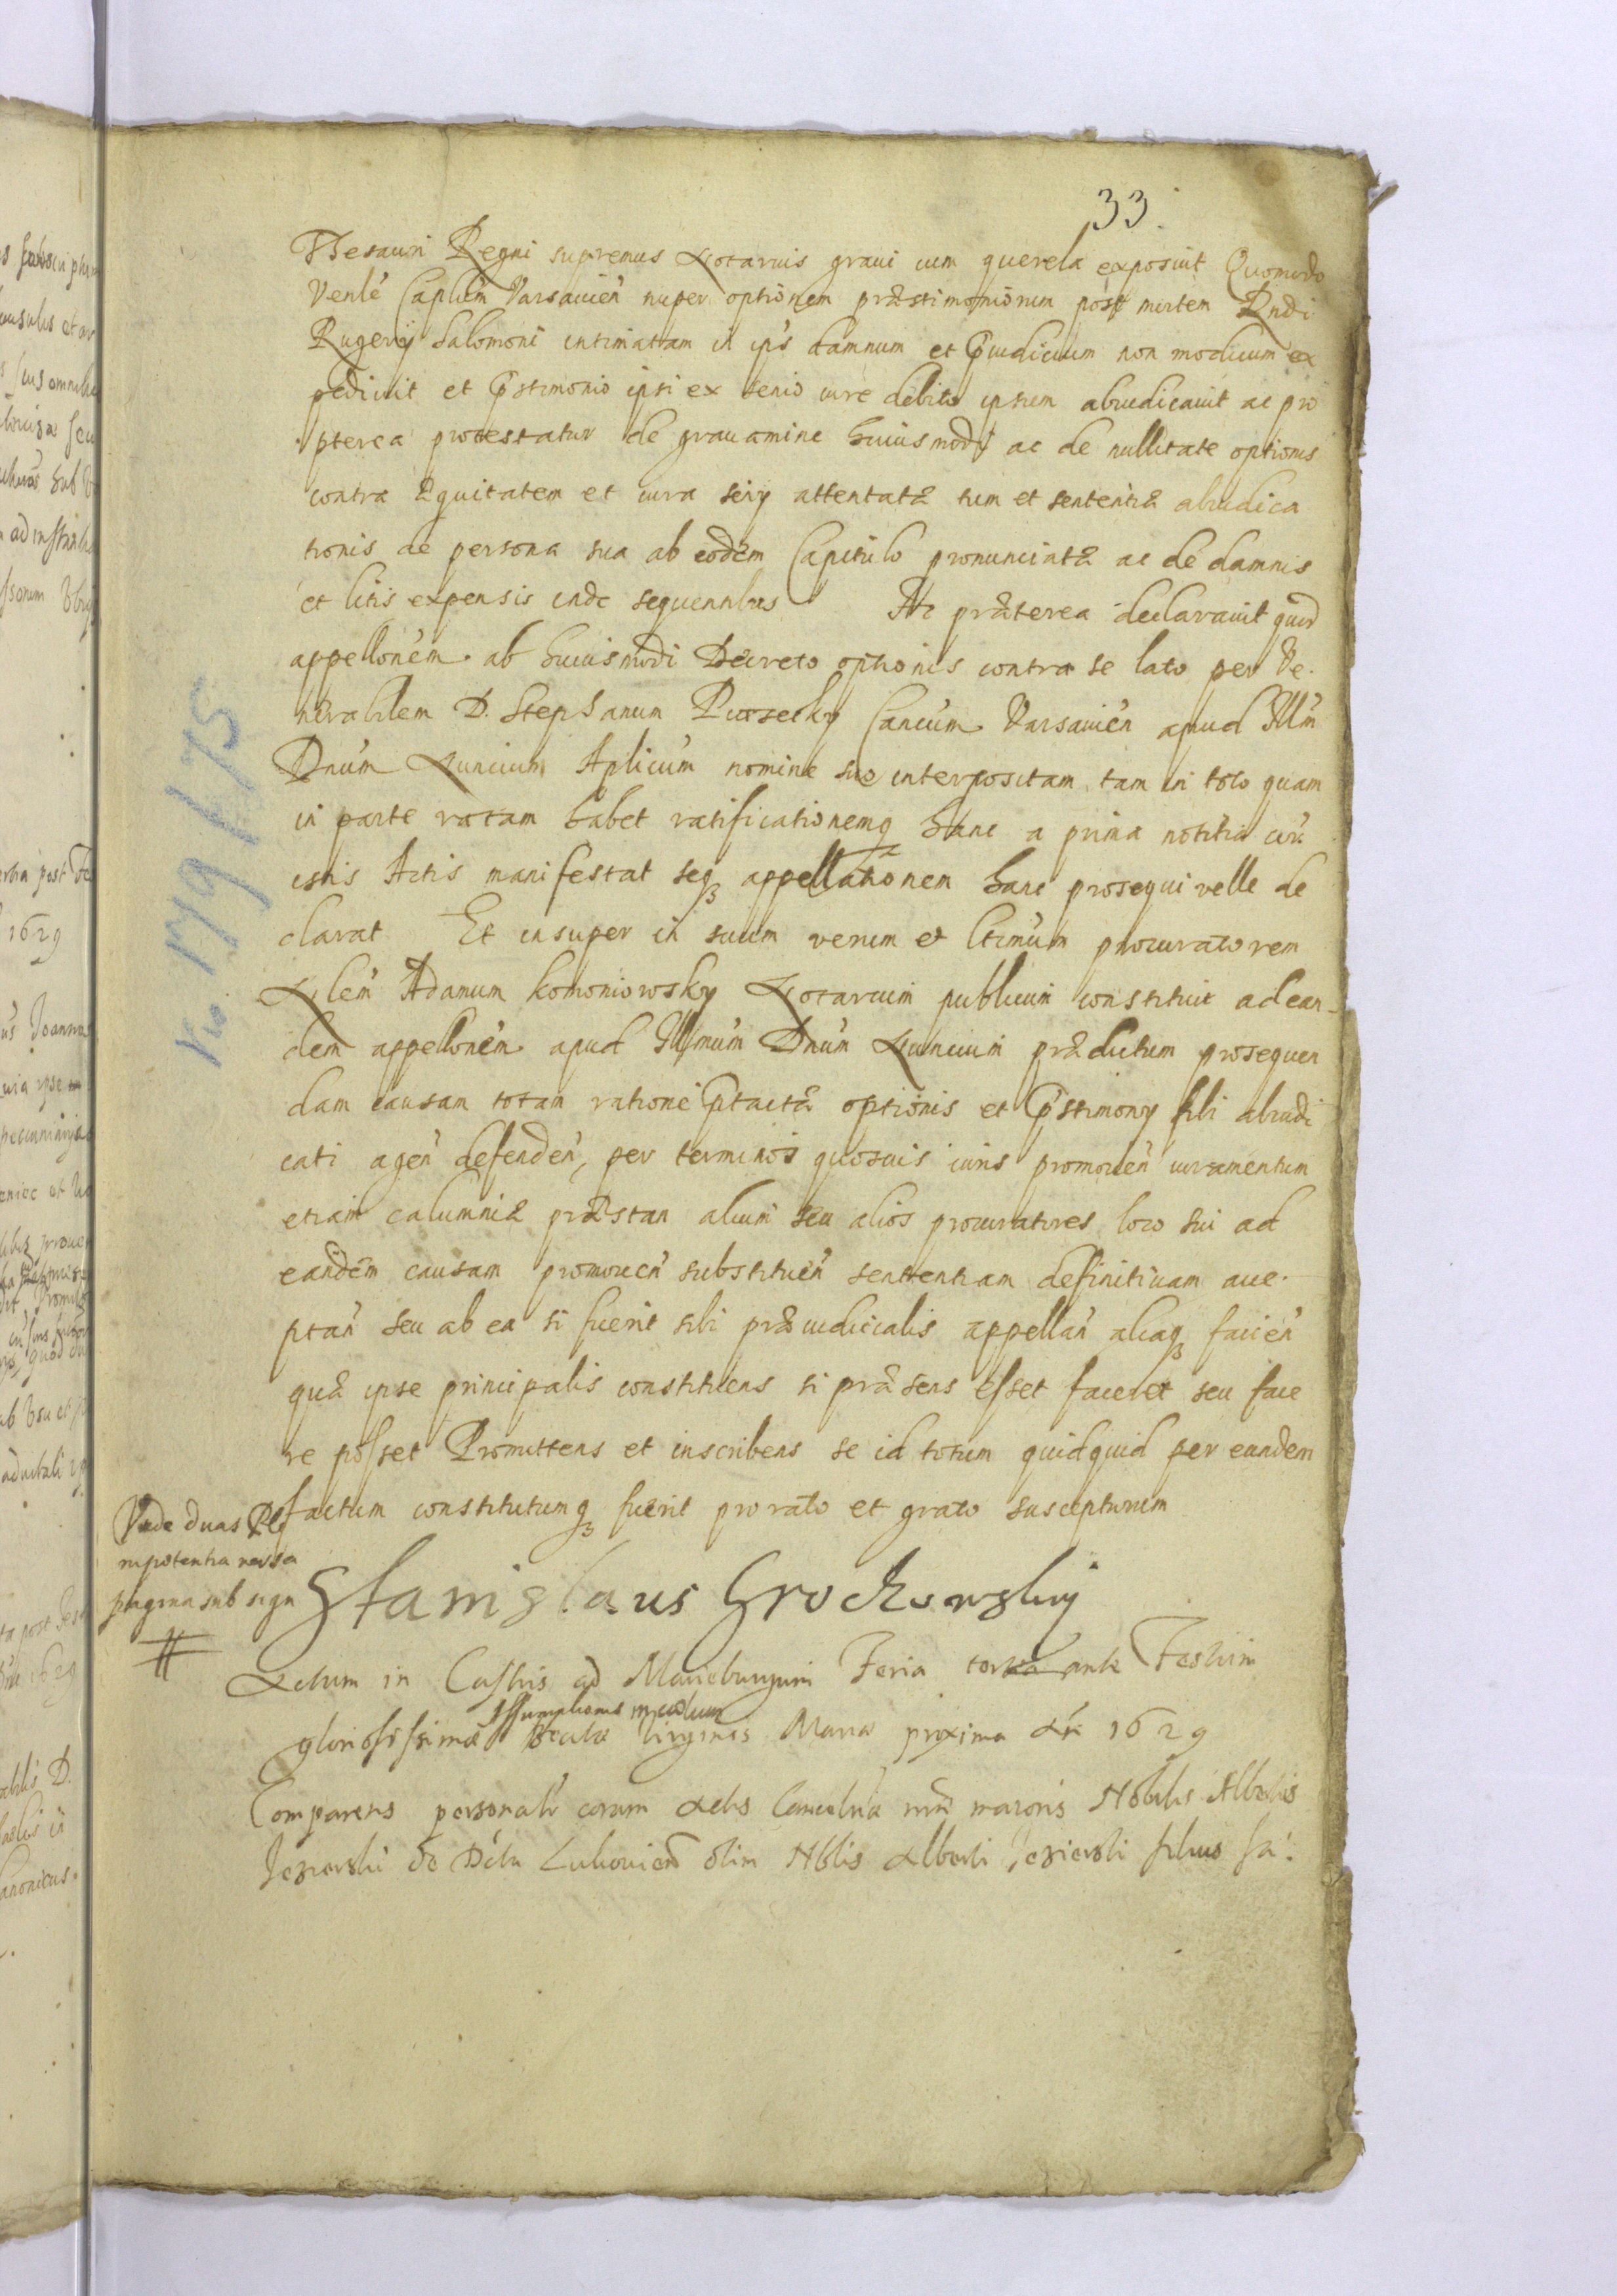 33.
Thesauri Regni supremus Notarius graui cum querela exposuit Quomodo
Venle Caplum Varsauien nuper optionem præstimoniorum post mortem Rndi
Rugerij Salomoni intimatam in ips damnum et Pjudicium non modicum ex
pediuit et Pstimonio ipsi ex senio iure debito ipsum abiudicauit ac pro
pterea protestatur de grauamine huiusmodi ac de nullitate optionis
contra æquitatem et iura senij attentatæ tum et sententiæ abiudica
tionis de persona sua ab eodem Capitulo pronunciatæ ac de damnis
et litis expensis inde sequentibus Ac præterea declarauit quod
appellonem ab huiusmodi Decreto optionis contra se lato per Ve.
nerabilem D. Stephanum Cancum Varsauien apud Illm
Dnum Nuncium Aplicum nomine suo interpositam tam in toto quam
in parte ratam habet ratificationemq hanc a prima notitia cor.
istis Actis manifestat seq appellationem hanc prosequi velle de
clarat Et insuper in suum verum et ltimum procuratorem
Nblem Adamum Komoniowsky Notarium publicum constituit ad ean-
dem appellonem apud Illmum Dnum Nuncium prædictum prosequen
dam causam totam ratione Ptactæ optionis et Pstimonij sibi abiudi
cati agen defenden, per terminos quosuis iuris promouen iuramentum
etiam calumniæ præstan alium seu alios procuratores loco sui ad
eandem causam promouen substituen sententiam definitiuam acce.
ptan seu ab ea si fuerit sibi præiudicialis appellan aliaq facien
quæ ipse principalis constituens si præsens esset faceret seu face
re posset Promittens et inscribens se id totum quidquid per eundem
factum constitutumq fuerit pro rato et grato suscepturum
Vide duas Ple
nipotentia versa
pagina sub sign
#
Stanislaus Grochowskij
Actum in Castris ad Marieburgum Feria tertia ante Festum
Assumptionis in cælum
gloriosissimæ Beatæ Virginis Mariæ proxima An 1629
Comparens personalr coram Actis Cancelria mri maioris Nobilis Albertus
Jezierski de Dcta Lukouien olim Nblis Alberti Jezierski filius sa:
No. 179/75